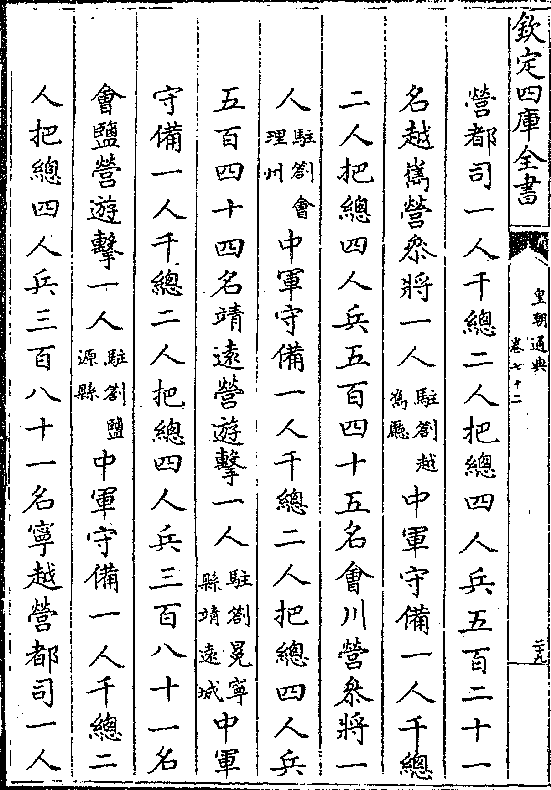 欽定四庫全書
皇朝通典
卷七十二
二九
營都司一人千總二人把總四人兵五百二十一
名越嶲營叅將一人駐劄越嶲廳中軍守備一人千總
二人把總四人兵五百四十五名會川營叅將一
人駐劄會理州中軍守備一人千總二人把總四人兵
五百四十四名靖遠營遊擊一人駐劄冕寧縣靖遠城中軍
守備一人千總二人把總四人兵三百八十一名
會鹽營遊擊一人駐劄鹽源縣中軍守備一人千總二
人把總四人兵三百八十一名寧越營都司一人